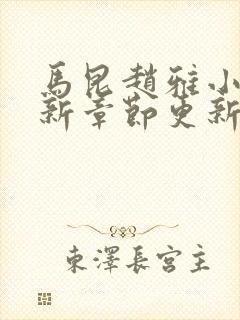 馬昆趙雅小
新章節更新
東澤長宮主